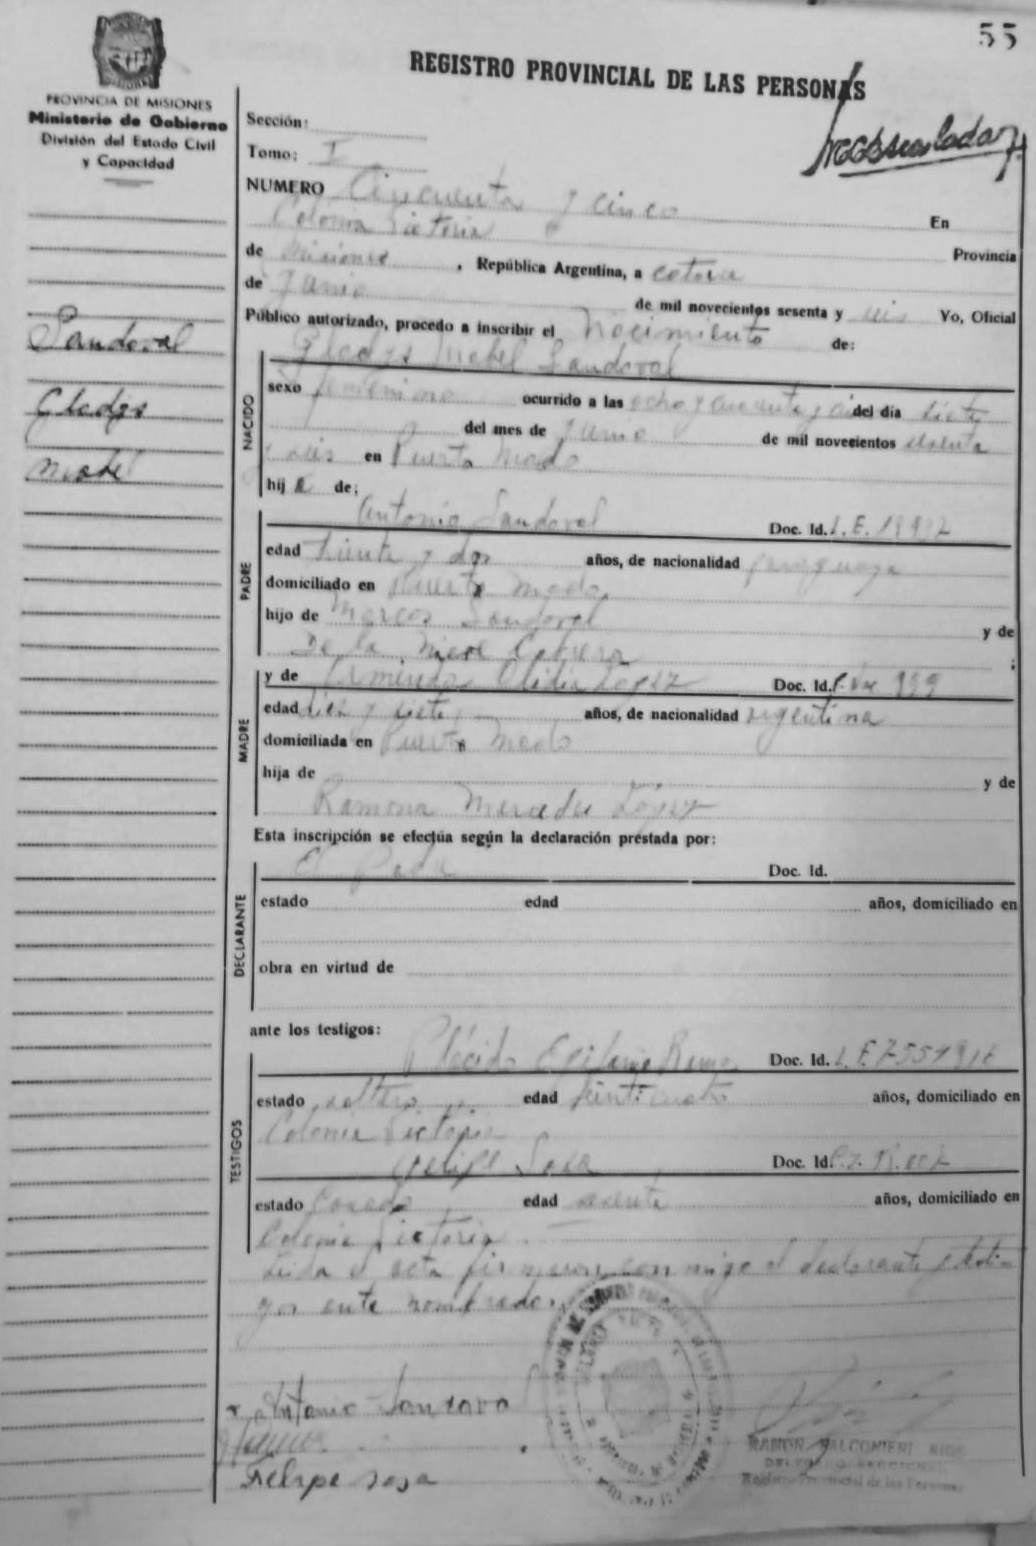 55
REGISTRO PROVINCIAL DE LAS PERSONAS
PROVINCIA DE MISIONES
Ministerio de Gobierno
División del Estado Civil
y Capacidad
Sandoval
Gladys
Mabel
Sección:
Tomo: I
NUMERO Cincuenta y cinco En
Colonia Victoria Provincia
de Misiones, República Argentina, a catorce
de Junio de mil novecientos sesenta y seis Yo, Oficial
Público autorizado, procedo a inscribir el Nacimiento de:
Gladys Mabel Sandoval
NACIDO
sexo femenino ocurrido a las ocho y cuarenta y del día siete
del mes de Junio de mil novecientos sesenta
y seis en Puerto Mado
hija de:
PADRE
Antonio Sandoval Doc. Id. L.E.
edad treinta y dos años, de nacionalidad paraguaya
domiciliado en Puerto Mado
hijo de Marcos Sandoval y de
De la Nieve Cabrera ;
MADRE
y de López Doc. Id.
edad diez y siete años, de nacionalidad argentina
domiciliada en Puerto Mado
hija de y de
Ramona Mercedes López
Esta inscripción se efectúa según la declaración prestada por:
DECLARANTE
El Padre Doc. Id.
estado edad años, domiciliado en
obra en virtud de
ante los testigos:
TESTIGOS
Plácido Doc. Id. L.E.
estado soltero edad veinticuatro años, domiciliado en
Colonia Victoria
Felipe Sosa Doc. Id.
estado Casado edad sesenta años, domiciliado en
Colonia Victoria.
Leída el acta firmaron conmigo el declarante y testi
gos ante nombrados.
Antonio Sandoval
Felipe Sosa
RAMON FALCONIERI
Registro Provincial de las Personas